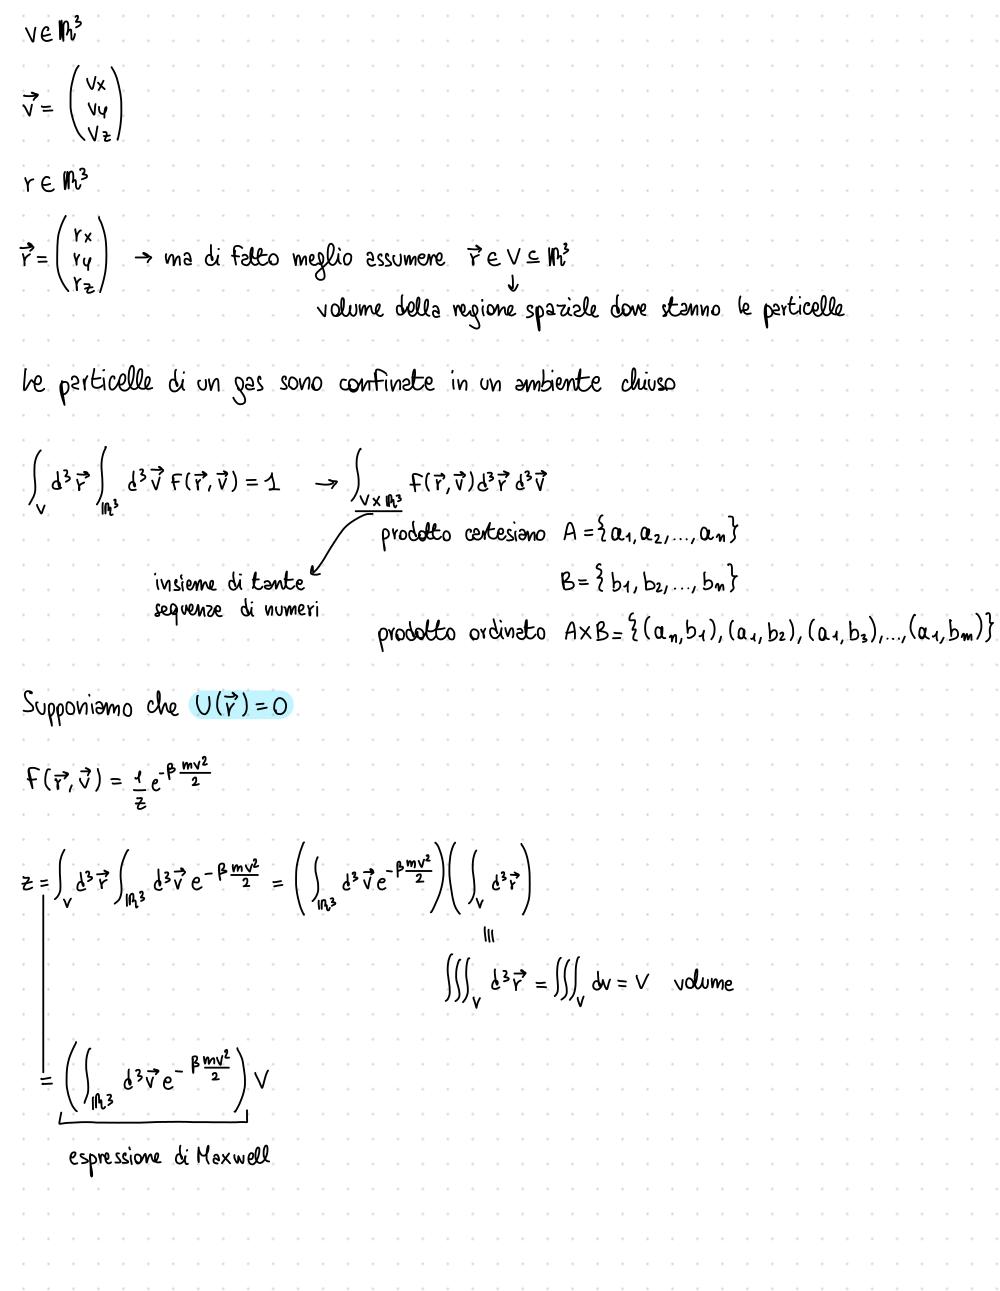 v∈ℝ³
v⃗ = (vx vy vz)
r∈ℝ³
r⃗ = (rx ry rz) → ma di fatto meglio assumere r⃗ ∈ V ⊆ ℝ³
↓
volume della regione spaziale dove stanno le particelle
Le particelle di un gas sono confinate in un ambiente chiuso
∫_V d³r⃗ ∫_ℝ³ d³v⃗ F(r⃗, v⃗) = 1 → ∫_V×ℝ³ F(r⃗, v⃗) d³r⃗ d³v⃗
prodotto cartesiano A = {a₁, a₂, ..., aₙ}
insieme di tante
sequenze di numeri
B = {b₁, b₂, ..., bₙ}
prodotto ordinato A×B = {(aₙ, b₁), (a₁, b₂), (a₁, b₃), ..., (a₁, bₘ)}
Supponiamo che U(r⃗) = 0
F(r⃗, v⃗) = 1/z e^(-β mv²/2)
z = ∫_V d³r⃗ ∫_ℝ³ d³v⃗ e^(-β mv²/2) = (∫_ℝ³ d³v⃗ e^(-β mv²/2)) (∫_V d³r⃗)
≡
∭_V d³r⃗ = ∭_V dv = V volume
= (∫_ℝ³ d³v⃗ e^(-β mv²/2)) V
espressione di Maxwell